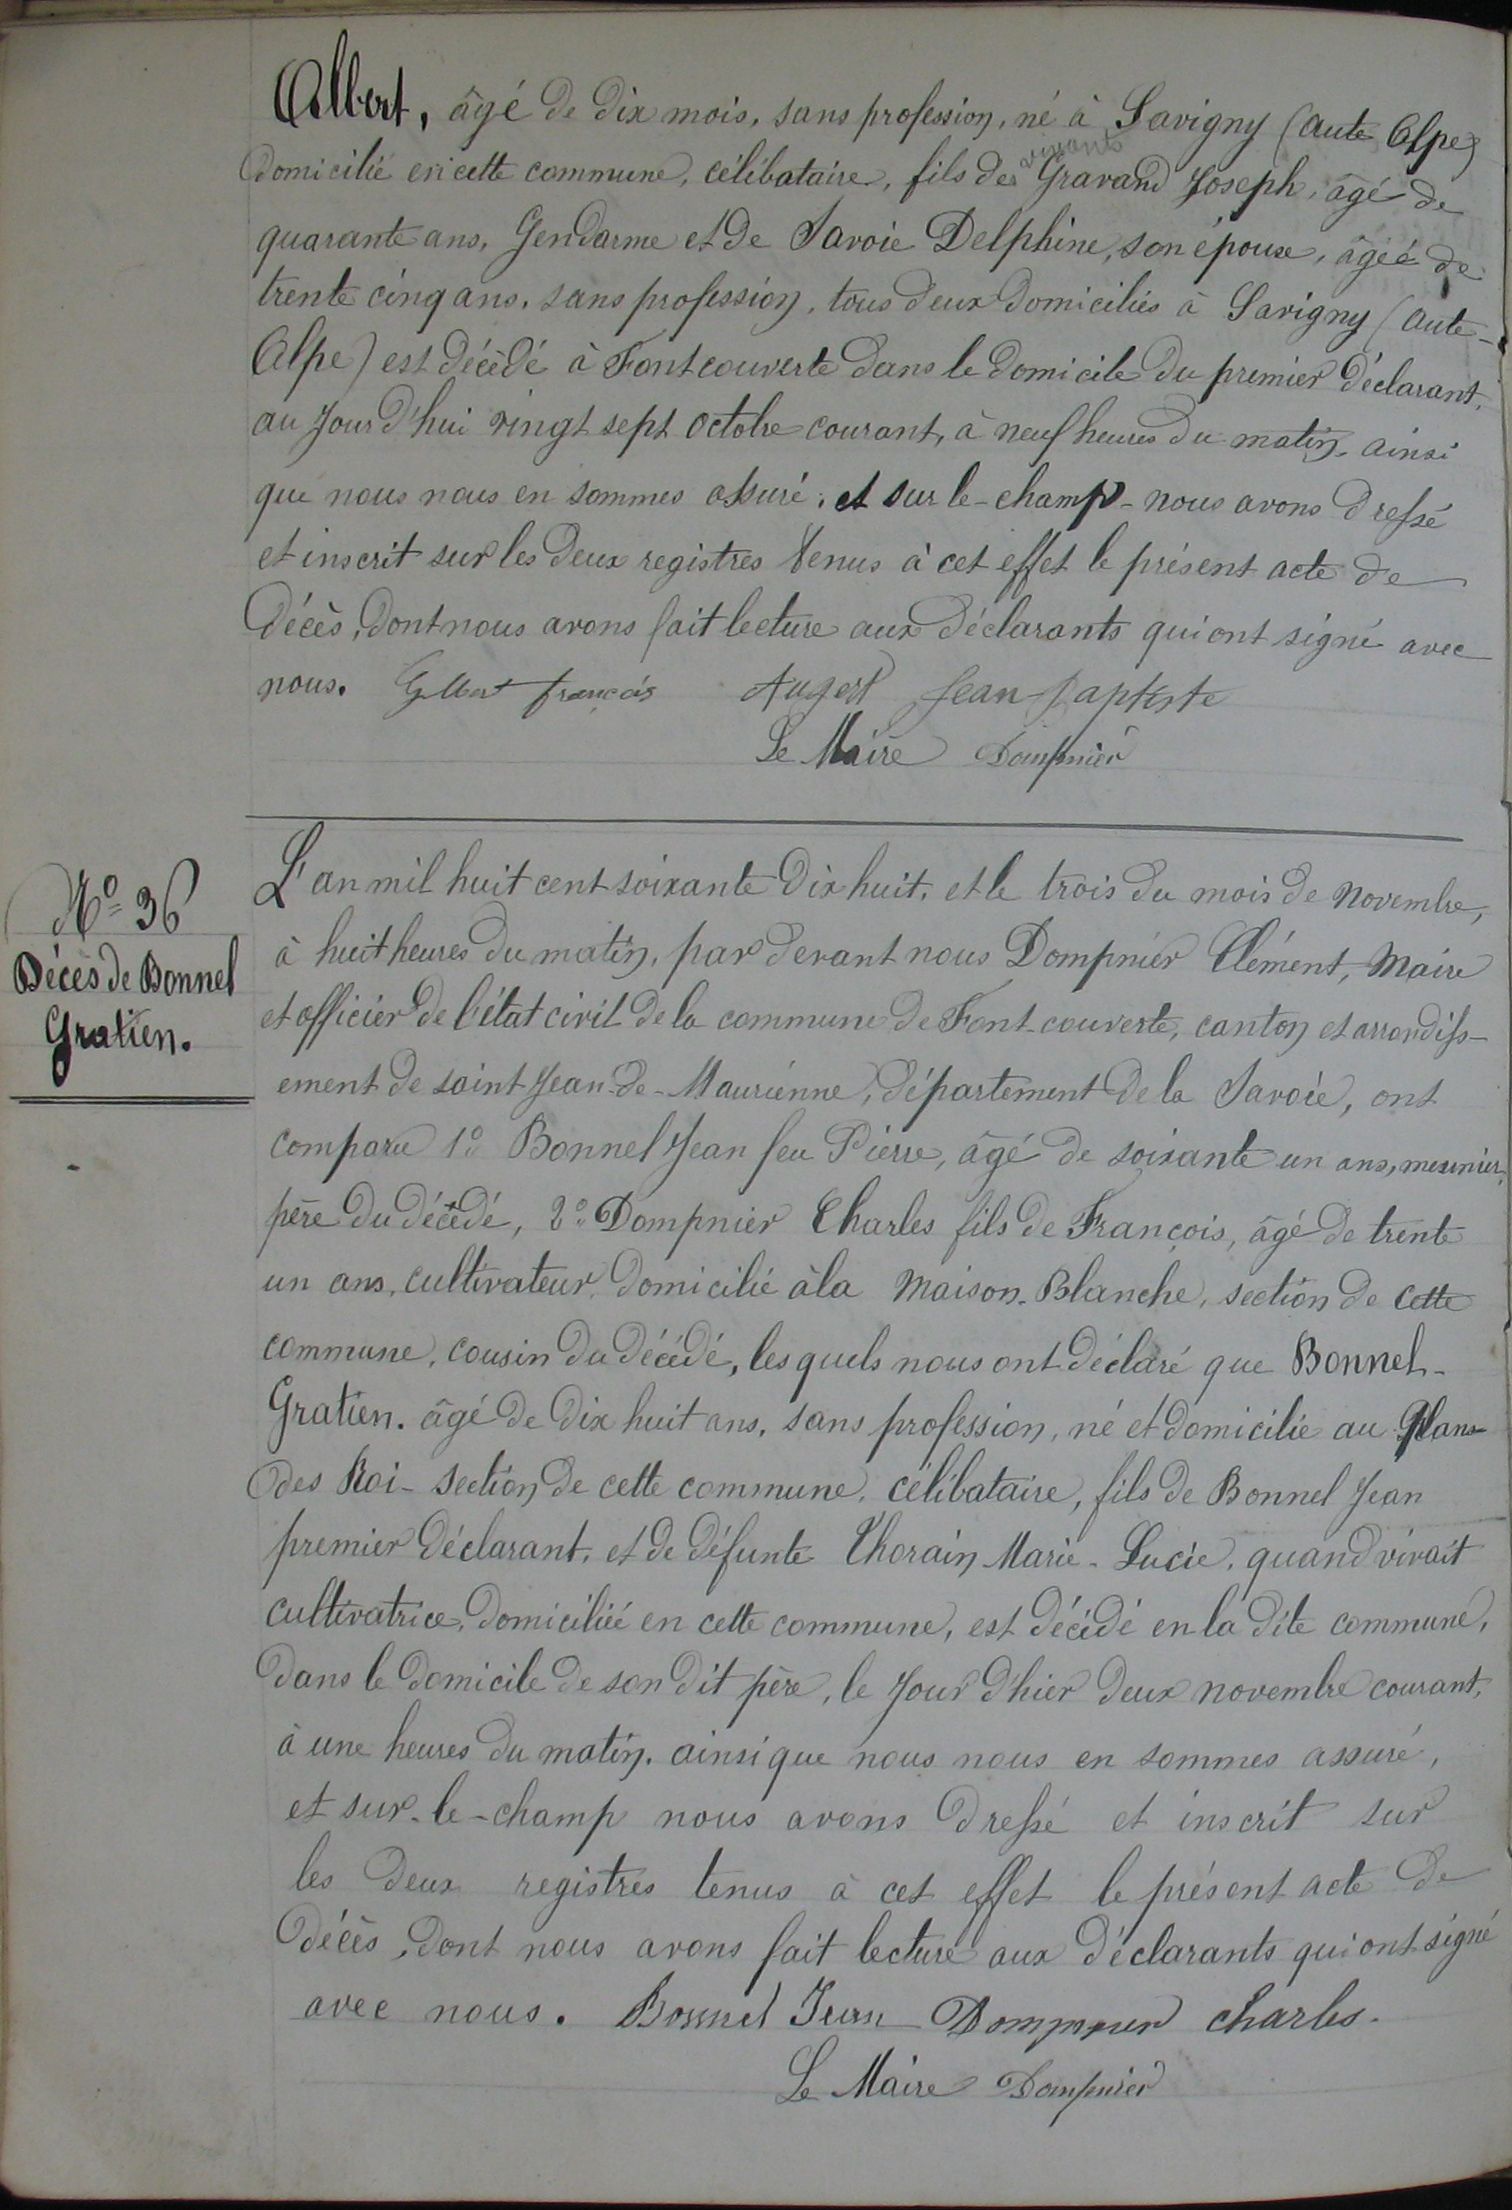 Albert, âgé de dix mois, sans profession, né à Savigny (aute Alpe)
vivants
domicilié en cette commune, célibataire, fils des Gravand Joseph, âgé de
quarante ans, Gendarme et de Savoie Delphine, son épouse, âgée de
trente cinq ans, sans profession, tous deux domiciliés à Savigny (aute-
Alpe) est décédé à Fontcouverte dans le domicile du premier déclarant,
au jourd'hui vingt sept octobre courant, à neuf heures du matin, ainsi
que nous nous en sommes assuré; et sur le-champ- nous avons dressé
et inscrit sur les deux registres tenus à cet effet le présent acte de
décès, dont nous avons fait lecture aux déclarants qui ont signé avec
nous. Gilbert françois Augert Jean Baptiste
Le Maire Dompnier
Nº 36
Décès de Bonnel
Gratien.
L'an mil huit cent soixante dix huit, et le trois du mois de novembre,
à huit heures du matin, par devant nous Dompnier Clément, Maire
et officier de l'état civil de la commune de Font-couverte, canton et arrondiss-
ement de saint Jean-de-Maurienne, département de la Savoie, ont
comparu 1º Bonnel Jean feu Pierre, âgé de soixante un ans, meunier,
père du décédé, 2º Dompnier Charles fils de François, âgé de trente
un ans, cultivateur, domicilié à la Maison-Blanche, section de cette
commune, cousin du décédé, les quels nous ont déclaré que Bonnel-
Gratien. âgé de dix huit ans, sans profession, né et domicilié au Plans-
des Roi- section de cette commune, célibataire, fils de Bonnel Jean
premier déclarant, et de défunte Thorain Marie-Lucie, quand vivait
cultivatrice, domiciliée en cette commune, est décédé en la dite commune,
dans le domicile de son dit père, le jour d'hier deux novembre courant,
à une heures du matin, ainsi que nous nous en sommes assuré,
et sur-le-champ nous avons dressé et inscrit sur
les deux registres tenus à cet effet le présent acte de
décès, dont nous avons fait lecture aux déclarants qui ont signé
avec nous. Bonnel Jean Dompnier charles.
Le Maire Dompnier